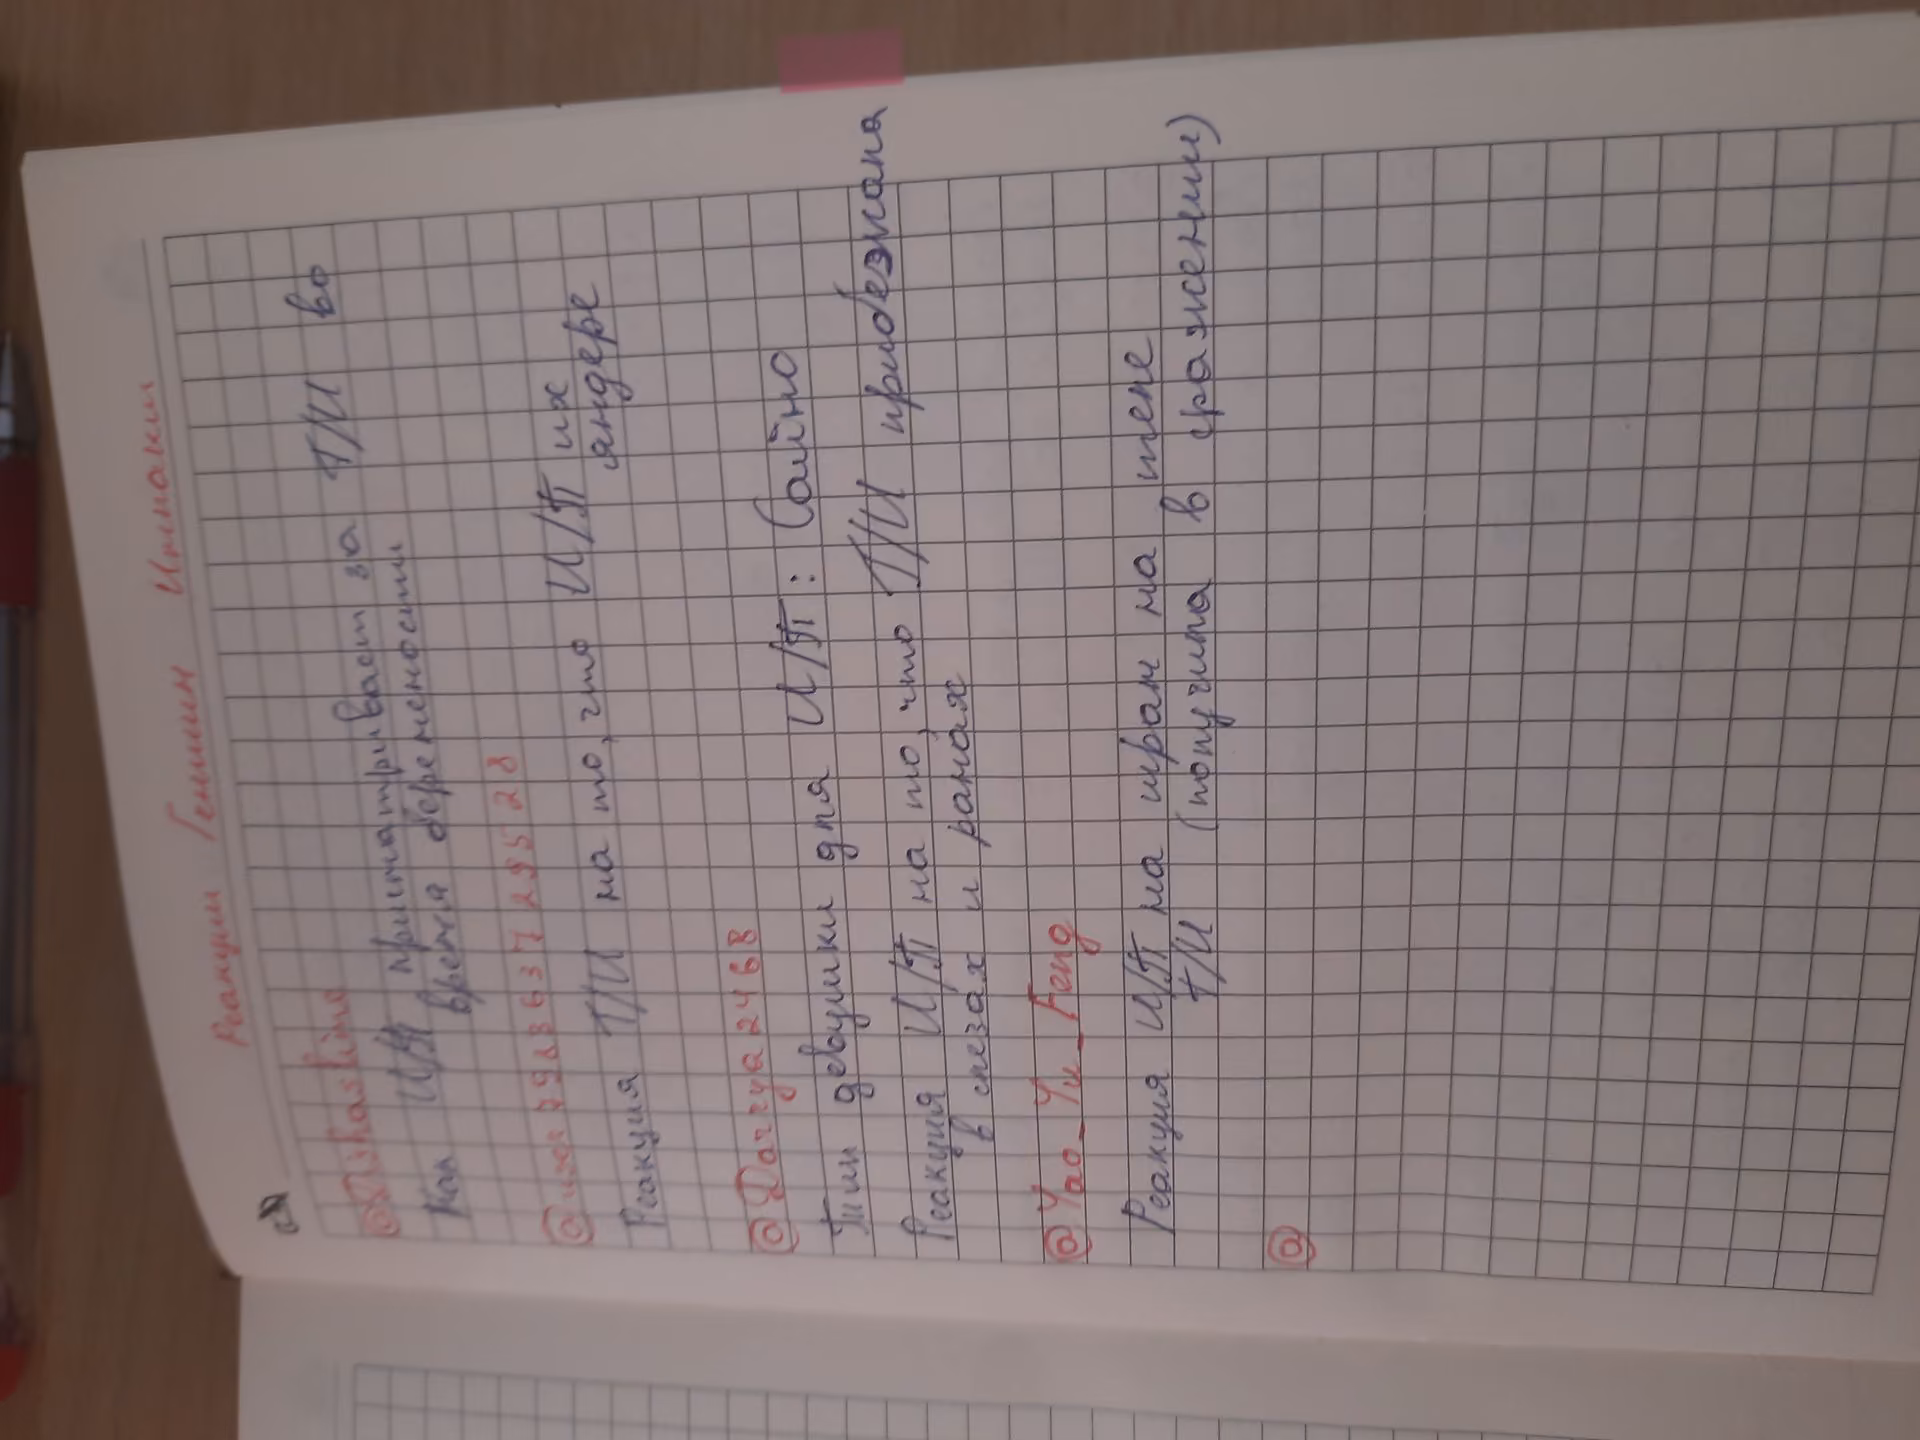 Реакции Геншин Импакт
@Dishasline
Как И/П присматривает за Т/И во
время беременности
Реакция Т/И на то, что И/П их
яндере
@Darya2468
Тип девушки для И/П: Сайно
Реакция И/П на то, что Т/И прибежала
в слезах и ранах
@Yao_Yu_Feng
Реакция И/П на шрам на теле
Т/И (получила в сражении)
@